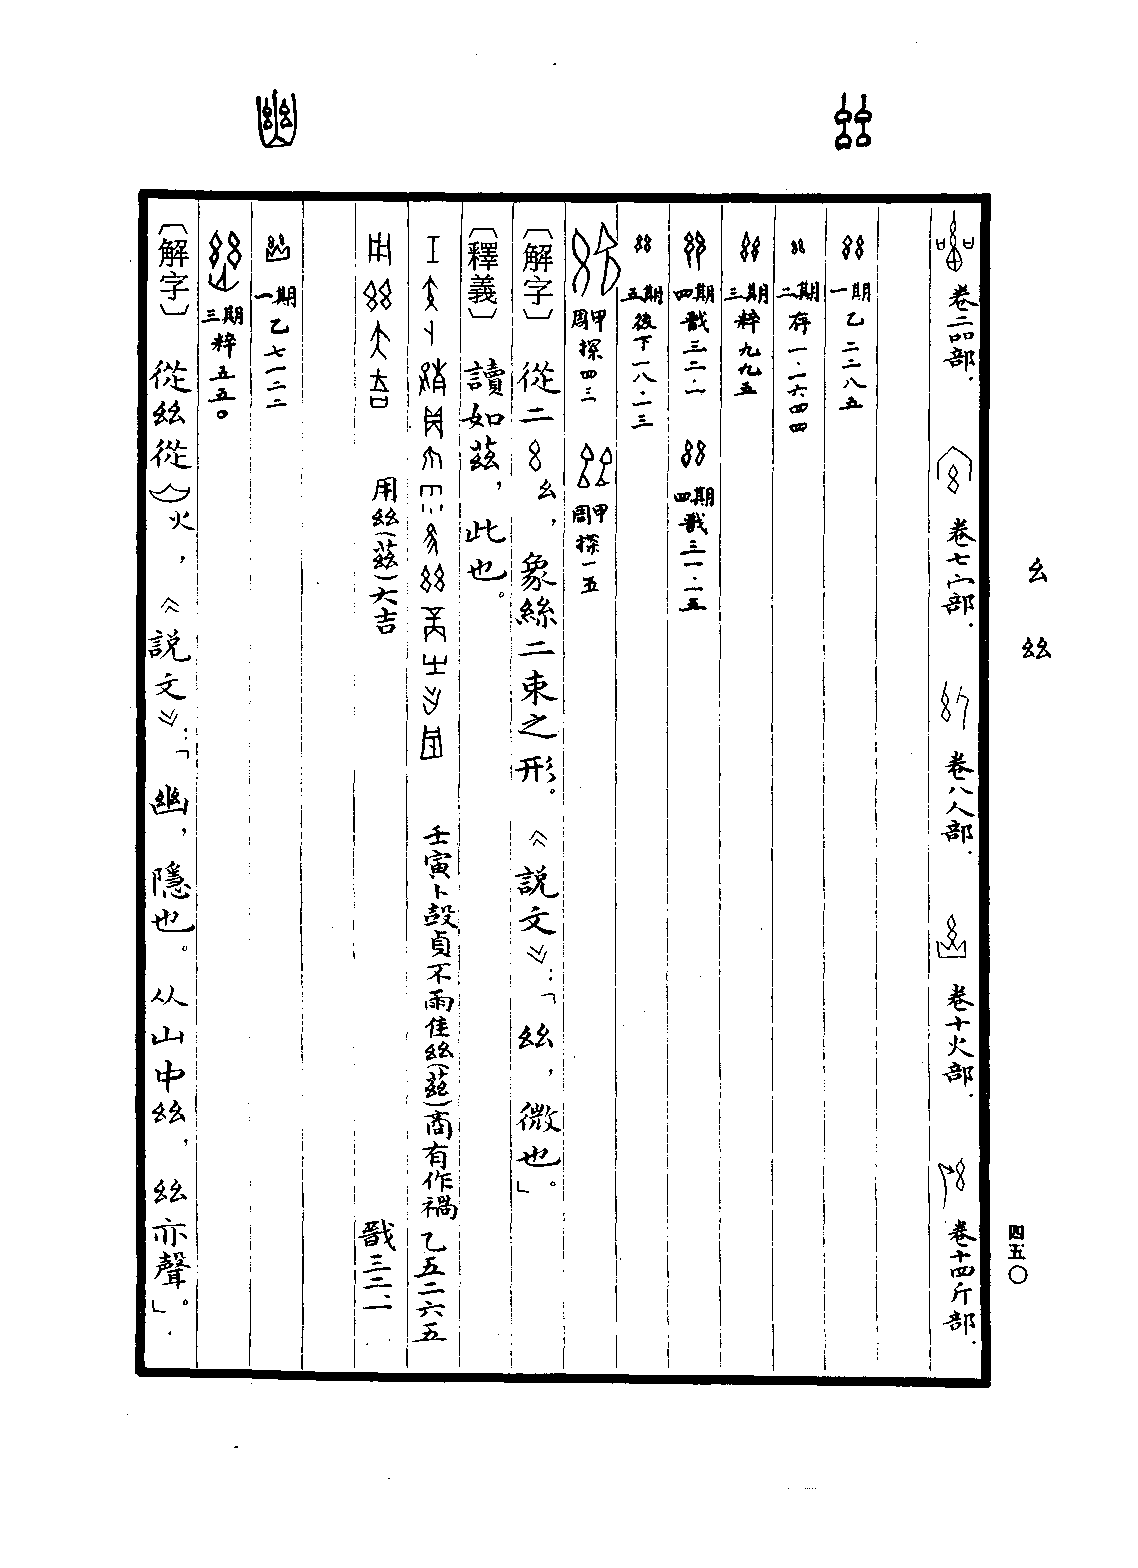 幺 𢆶
四五〇
卷二品部.
卷七宀部.
卷八人部.
卷十火部.
卷十四斤部.
一期 乙二二八五
二期 存一·一六四四
三期 粹九九五
四期 戩三二·一
四期 戩三一·一五
五期 後下一八·一三
周甲 探四三
周甲 探一五
〔解字〕 從二幺，象絲二束之形。《說文》：「𢆶，微也。」
〔釋義〕 讀如茲，此也。
壬寅卜㱿貞不雨隹𢆶(茲)商有作禍 乙五二六五
用𢆶(茲)大吉 戩三二、一
一期 乙七一二二
三期 粹五五〇
〔解字〕 從𢆶從火，《說文》：「幽，隱也。从山中𢆶，𢆶亦聲」。